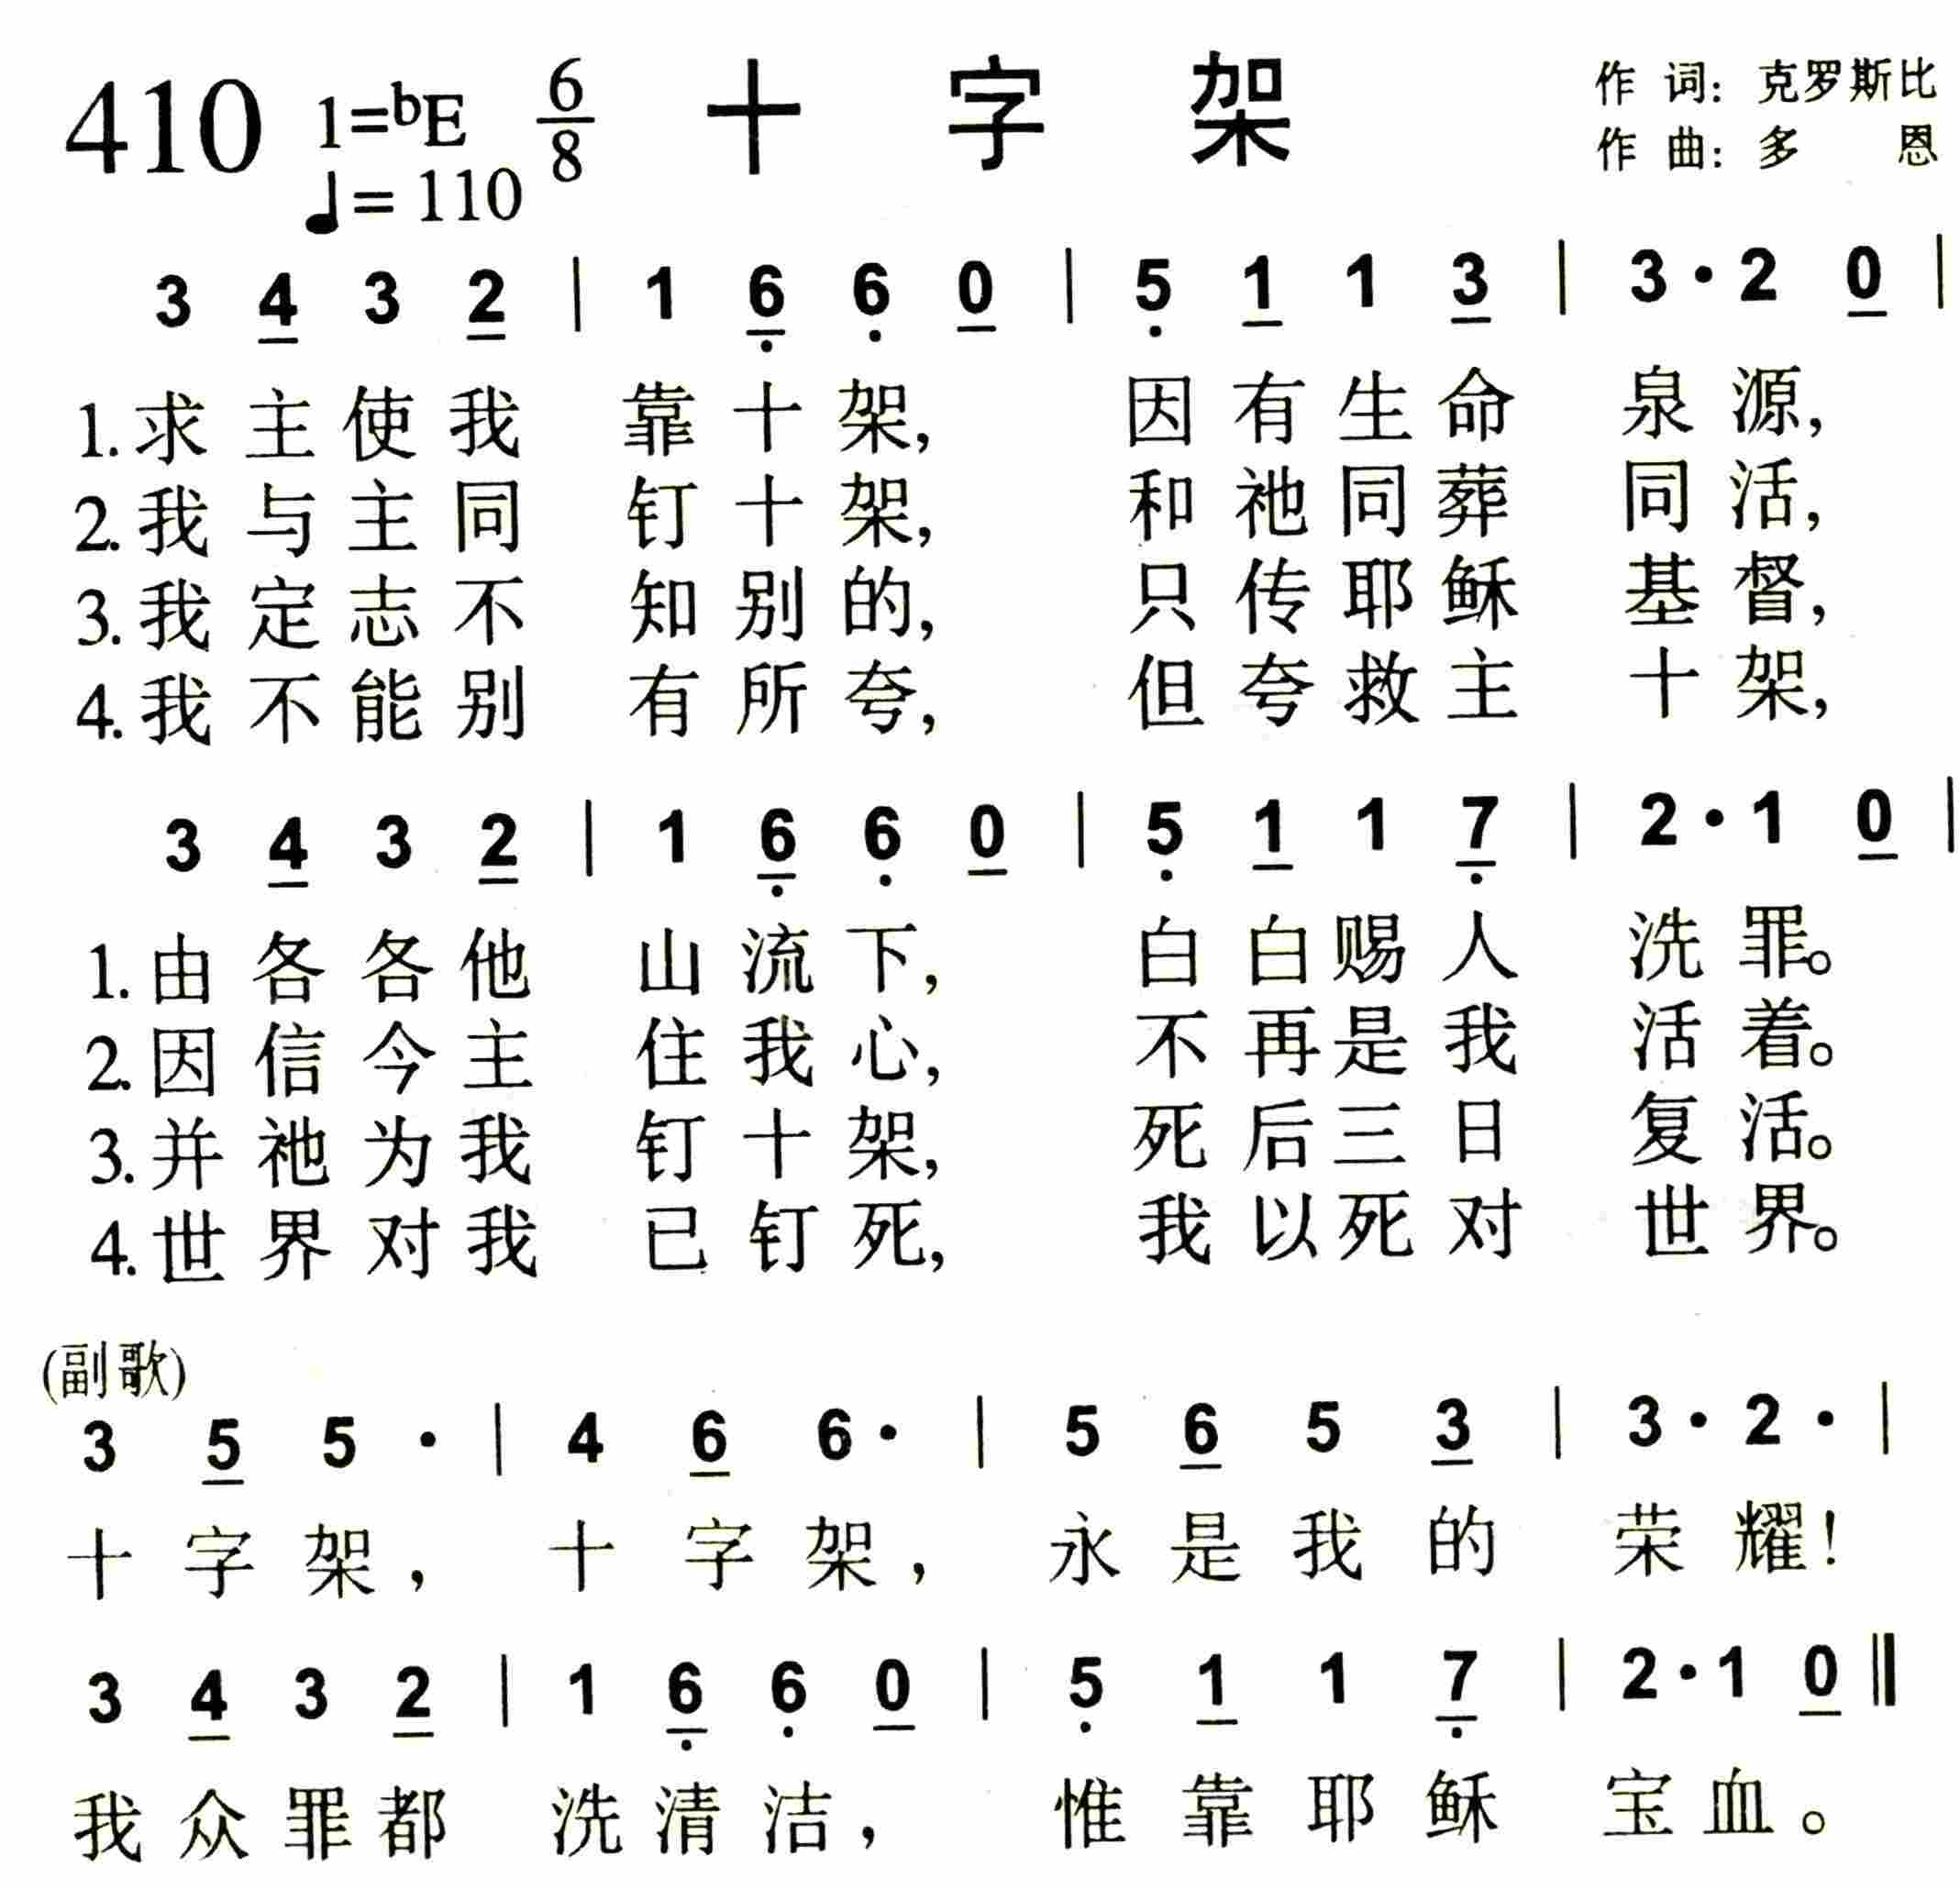 410 1=♭E 6/8 十字架 作词：克罗斯比
♩=110 作曲：多恩
3 4 3 2 | 1 6 6 0 | 5 1 1 3 | 3·2 0 |
1.求主使我 靠十架, 因有生命 泉源,
2.我与主同 钉十架, 和祂同葬 同活,
3.我定志不 知别的, 只传耶稣 基督,
4.我不能别 有所夸, 但夸救主 十架,
3 4 3 2 | 1 6 6 0 | 5 1 1 7 | 2·1 0 |
1.由各各他 山流下, 白白赐人 洗罪。
2.因信今主 住我心, 不再是我 活着。
3.并祂为我 钉十架, 死后三日 复活。
4.世界对我 已钉死, 我以死对 世界。
(副歌)
3 5 5· | 4 6 6· | 5 6 5 3 | 3·2· |
十字架, 十字架, 永是我的 荣耀!
3 4 3 2 | 1 6 6 0 | 5 1 1 7 | 2·1 0 ‖
我众罪都 洗清洁, 惟靠耶稣 宝血。